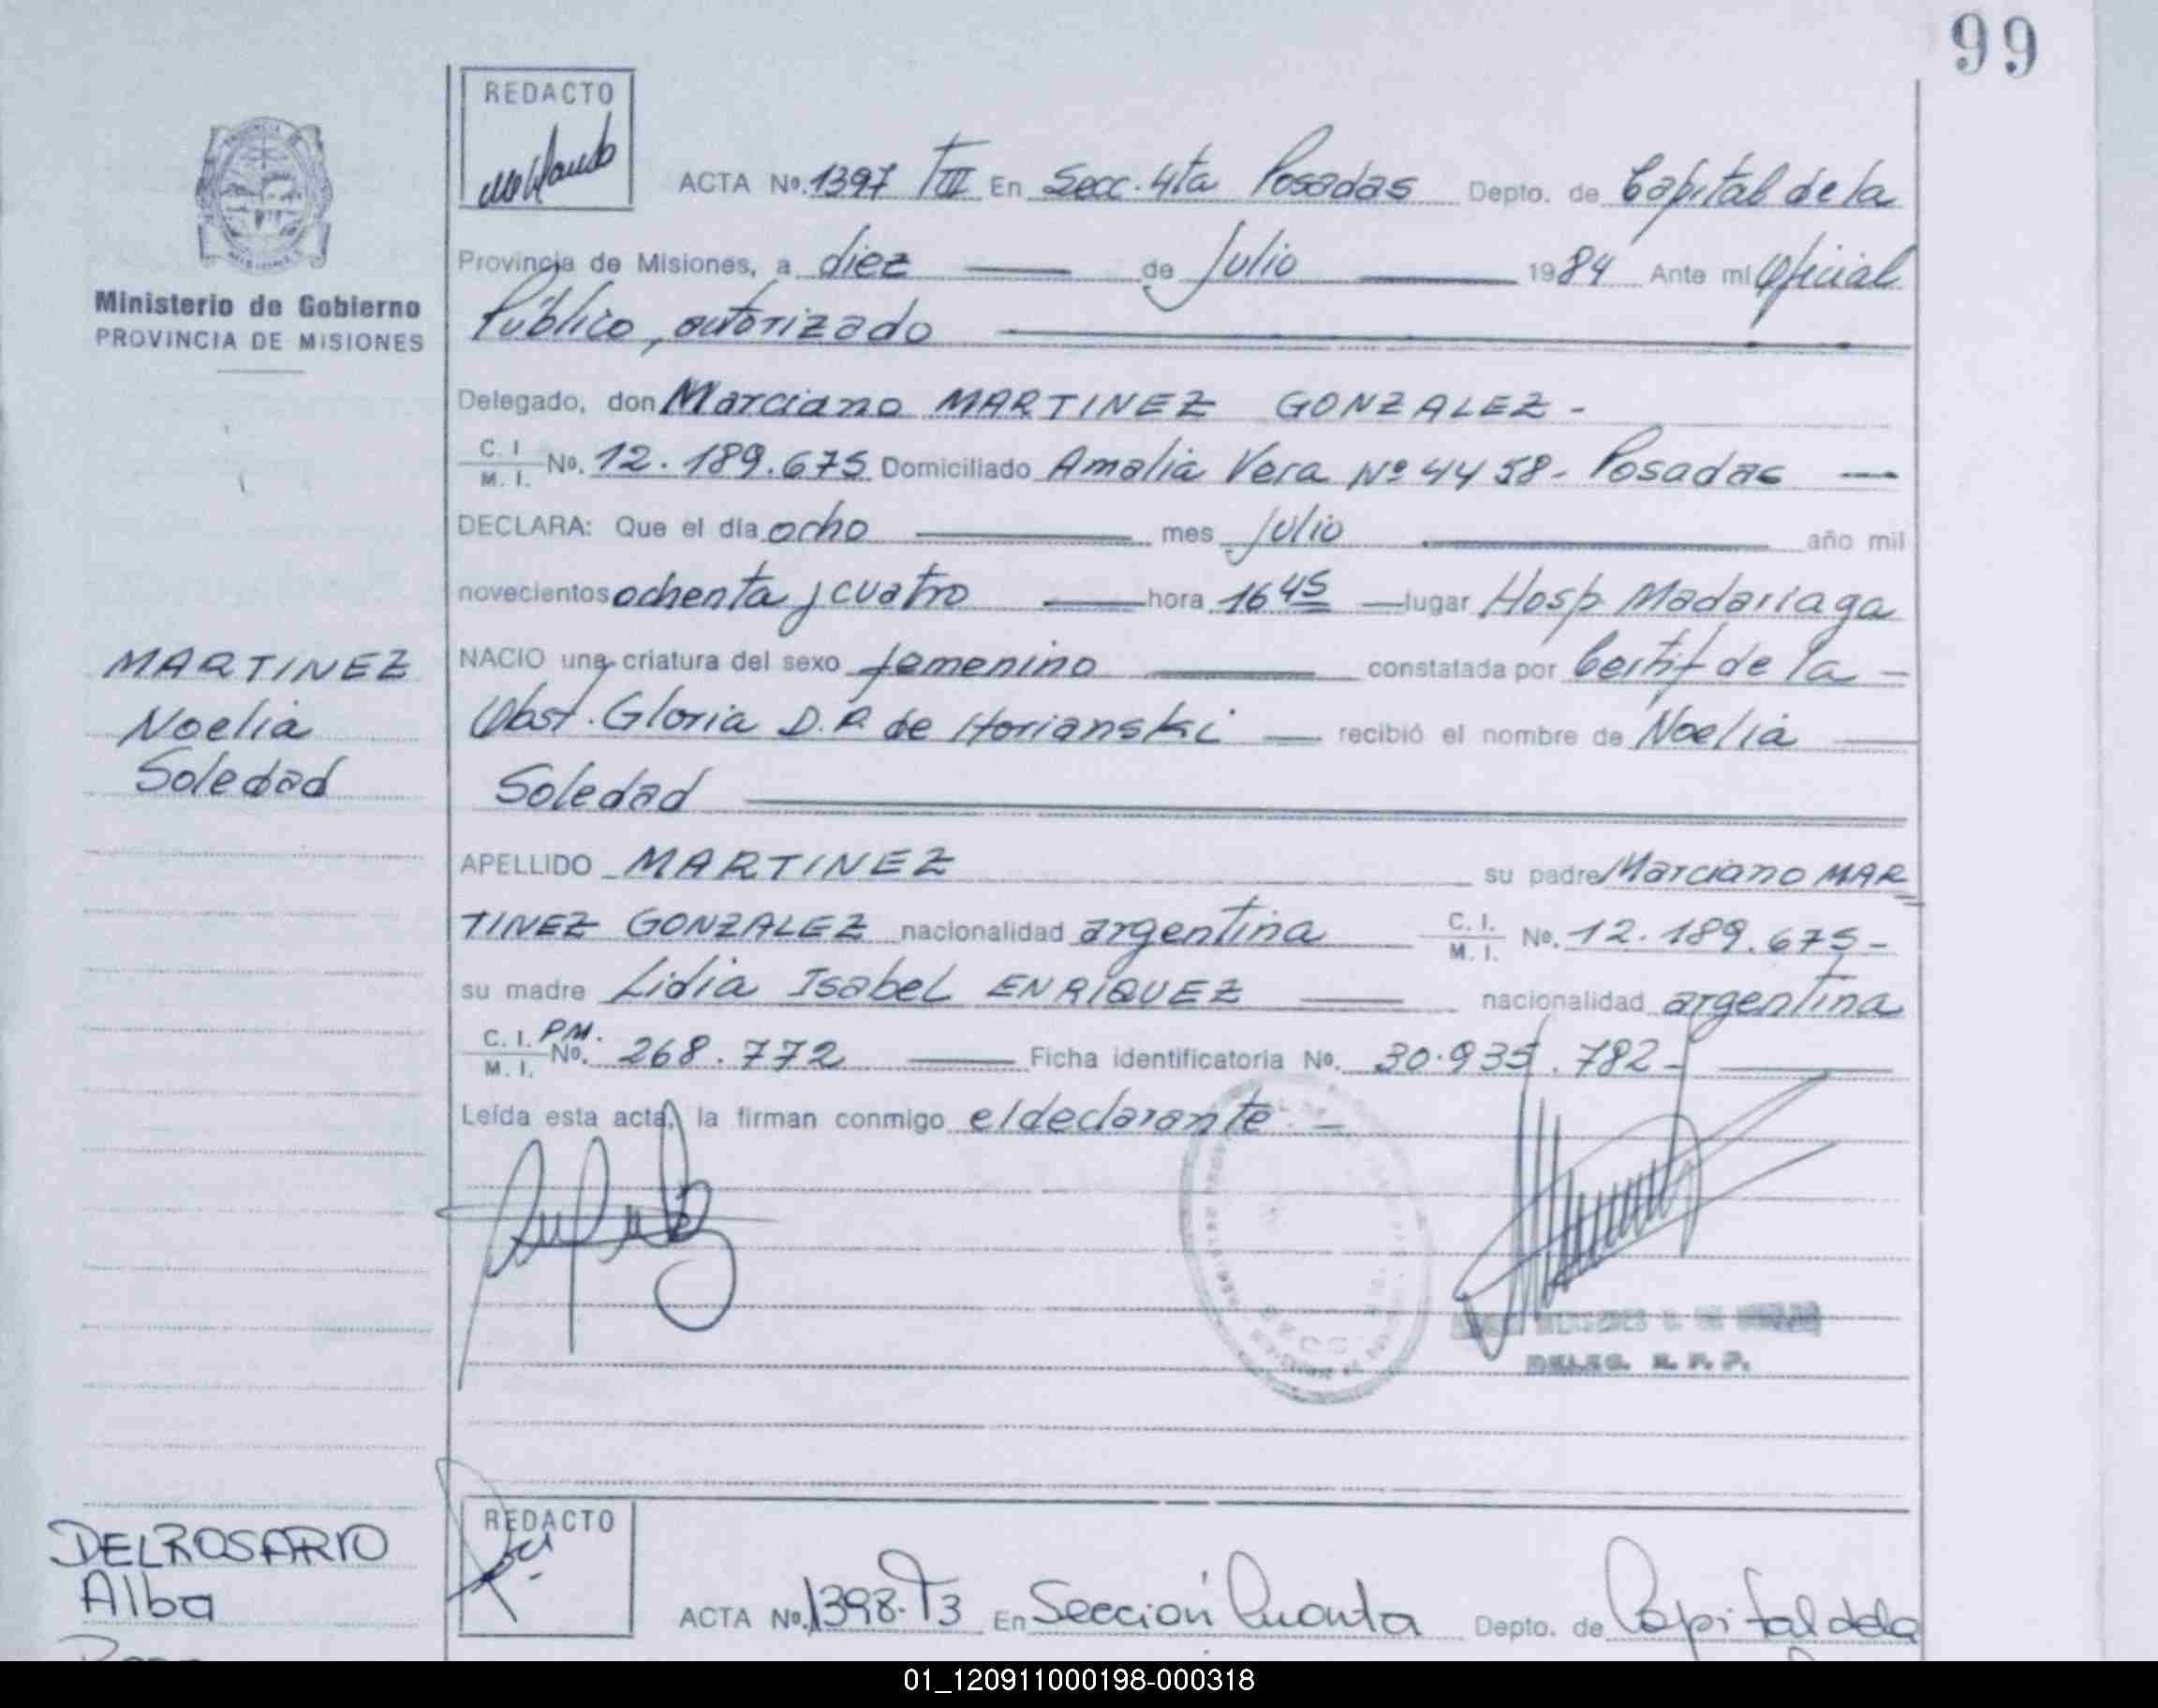 99
REDACTO
ACTA No. 1397 TIII En Secc. 4ta Posadas Depto. de Capital de la
Provincia de Misiones, a diez de Julio 1984 Ante mí Oficial
Público, autorizado
Ministerio de Gobierno
PROVINCIA DE MISIONES
Delegado, don Marciano MARTINEZ GONZALEZ -
C. I. M. I. No. 12.189.675 Domiciliado Amalia Vera Nº 4458 - Posadas
DECLARA: Que el día ocho mes Julio año mil
novecientos ochenta y cuatro hora 16 45 lugar Hosp. Madariaga
MARTINEZ
Noelia
Soledad
NACIO una criatura del sexo femenino constatada por Certif de la
Obst. Gloria D.R. de Horianski recibió el nombre de Noelia
Soledad
APELLIDO MARTINEZ su padre Marciano MAR
TINEZ GONZALEZ nacionalidad argentina C. I. M. I. No. 12.189.675-
su madre Lidia Isabel ENRIQUEZ nacionalidad argentina
C. I. M. I. P.M. No. 268.772 Ficha identificatoria No. 30.935.782-
Leída esta acta, la firman conmigo el declarante. -
DELEG. R. P. P.
DEL ROSARIO
Alba
REDACTO
ACTA No. 1398-T3 En Sección Cuarta Depto. de Capital de la
01_120911000198-000318